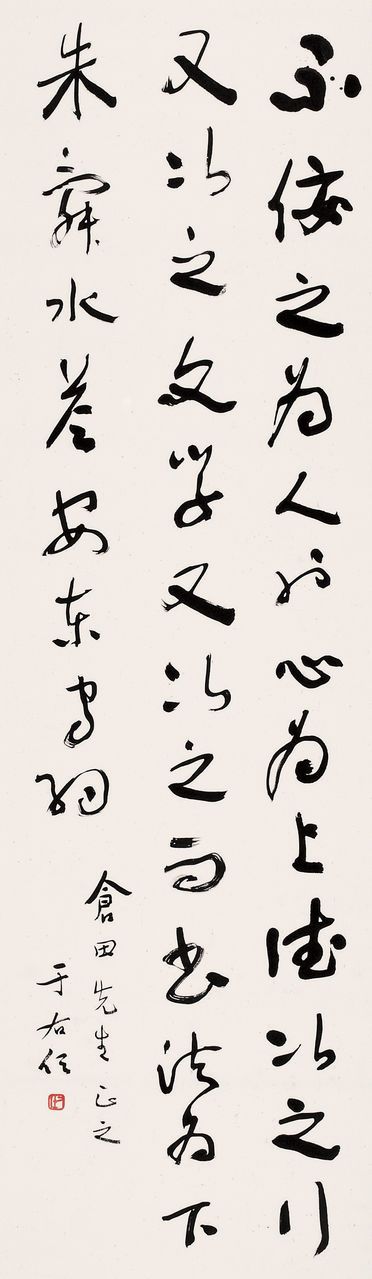 不佞之為人心為上德次之行
又次之文學又次之而書法為下
朱舜水答安東守約
倉田先生正之
于右任